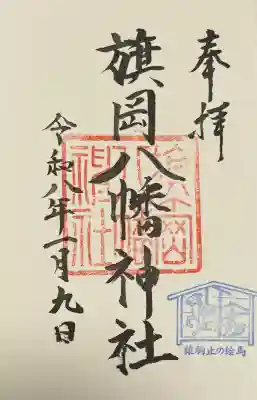 奉拝
旗岡八幡神社
令和八年一月九日
旗岡八幡神社
雉駒止の絵馬